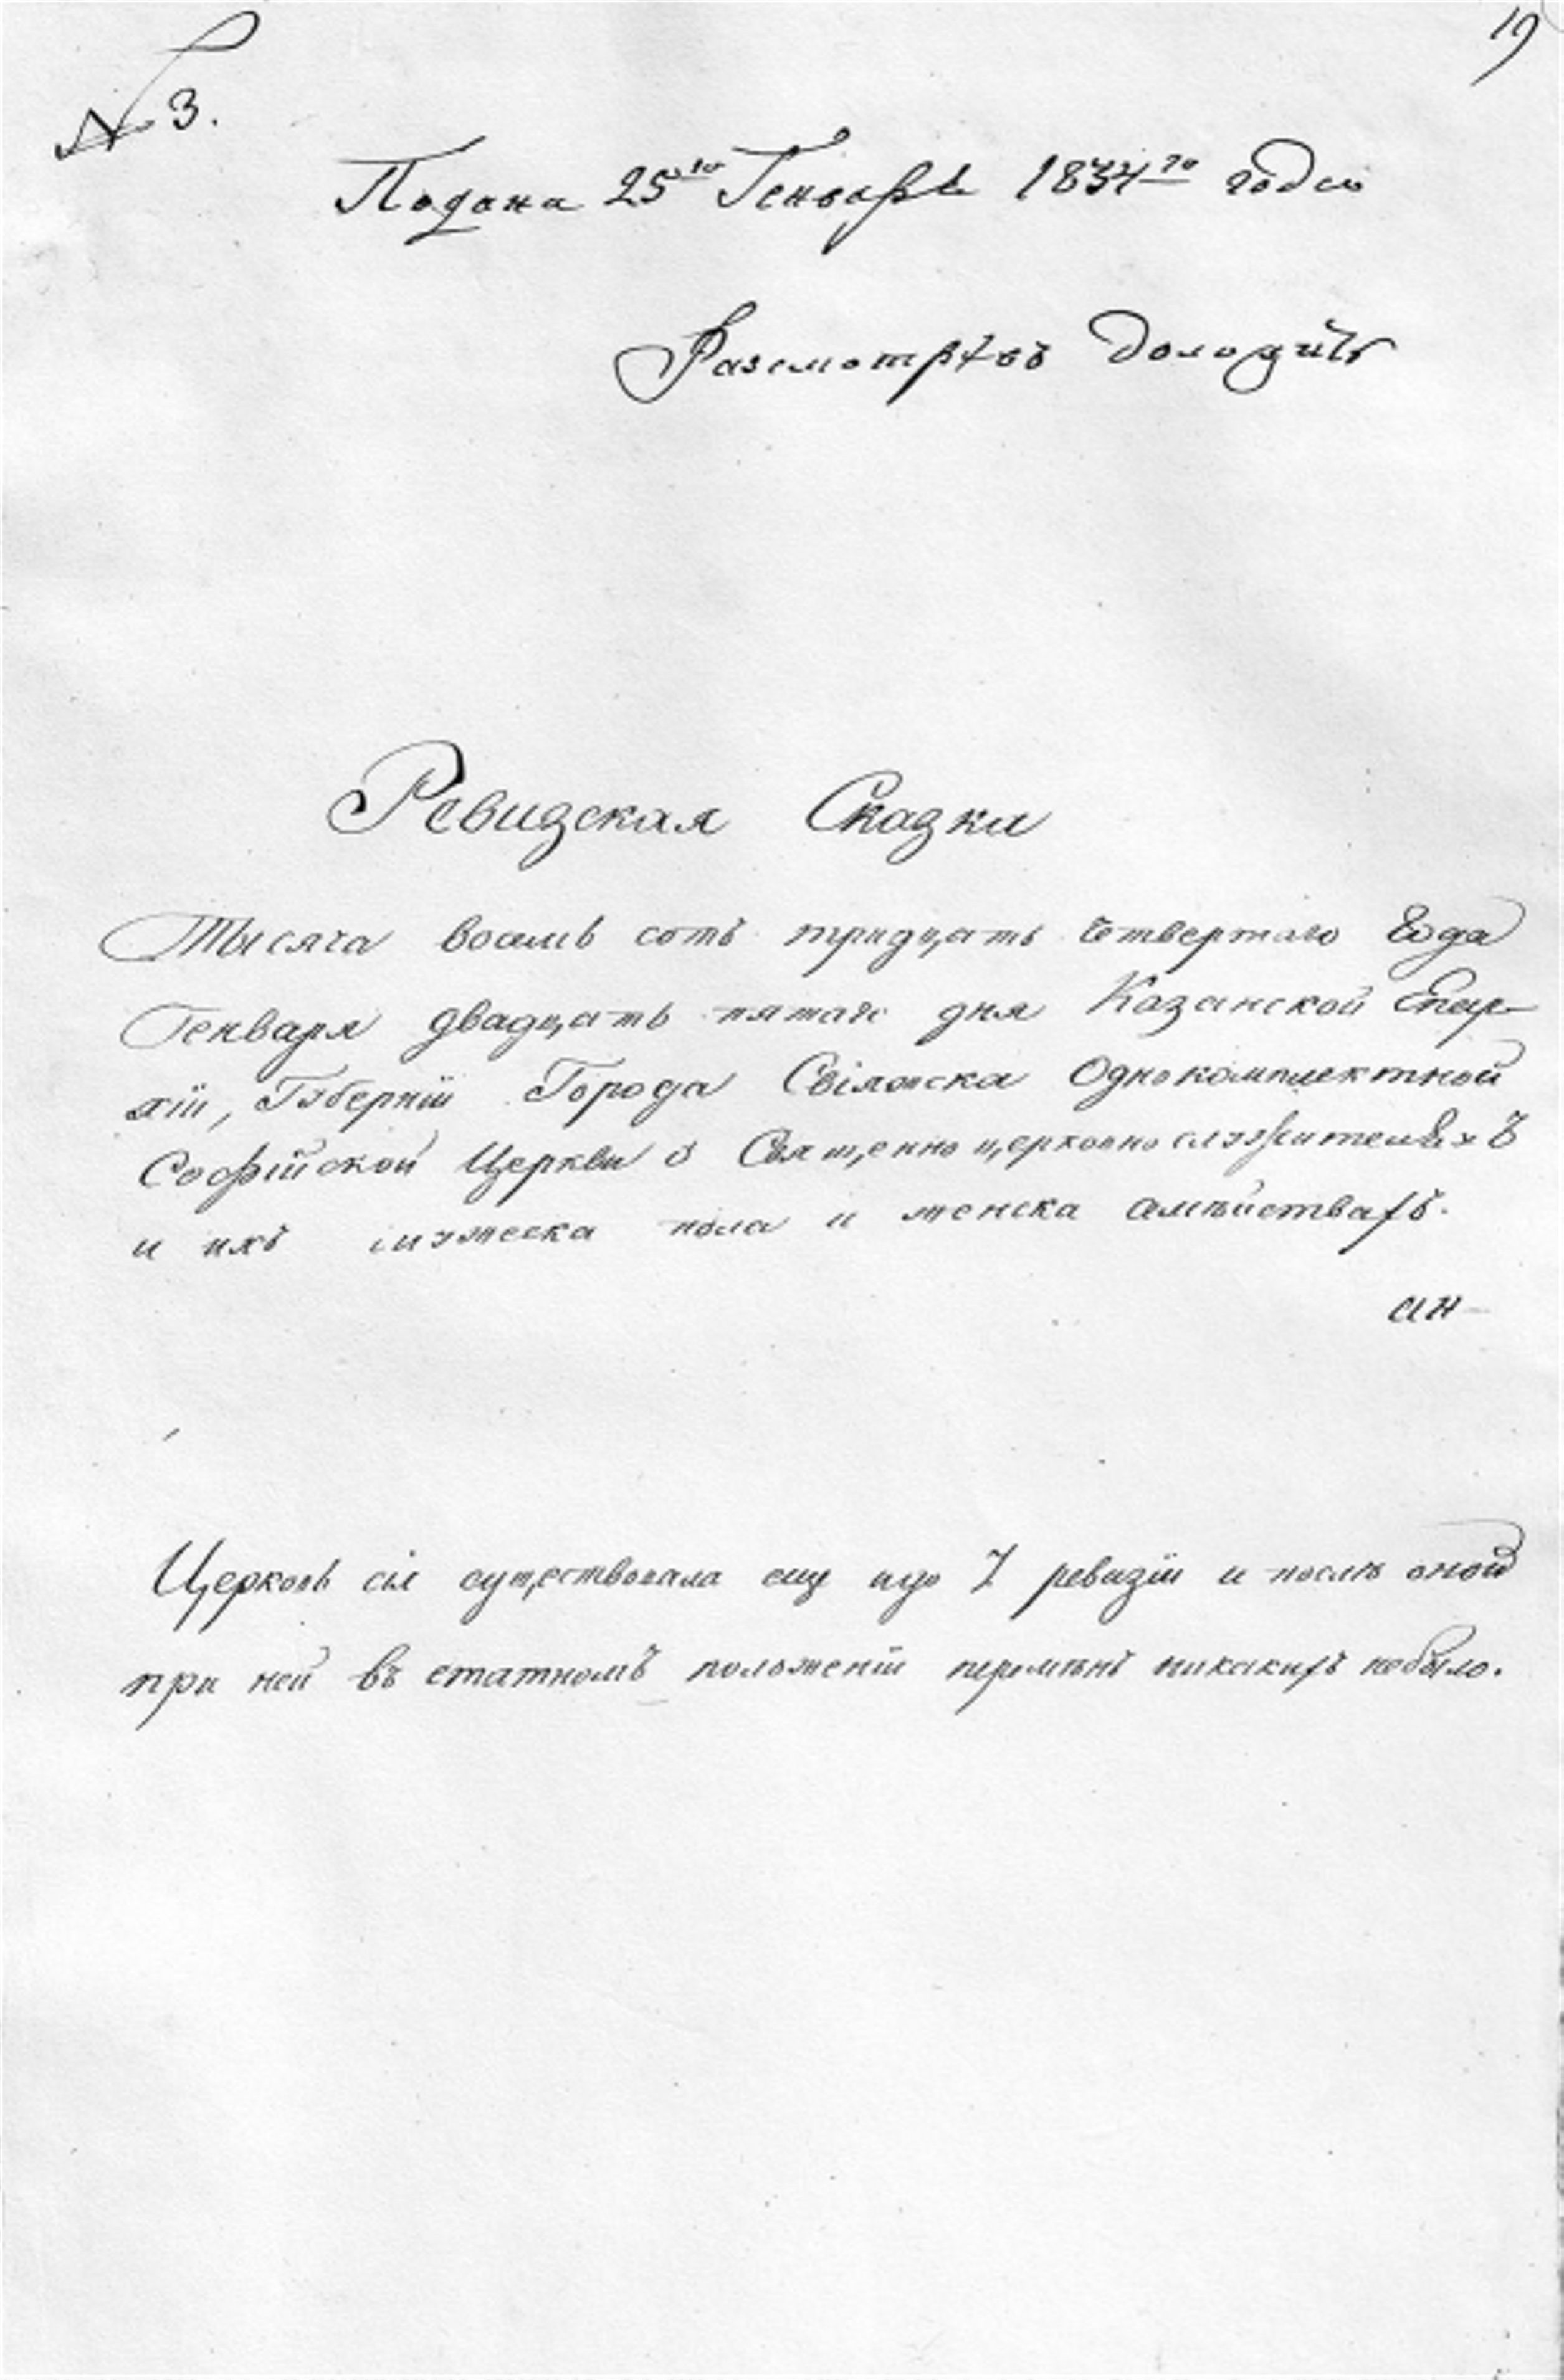 19
№ 3.
Подана 25го Генваря 1834го года
Разсмотрѣвъ доложить
Ревизская Сказка
Тысяча восемь сотъ тридцать четвертаго года
Генваря двадцать пятаго дня Казанской Епар-
хіи, Губерніи Города Свіяжска Однокомплектной
Софійской Церкви о Священно церковно служителяхъ
и ихъ мужеска пола и женска семействахъ.
Церковь сія существовала еще и до 7 ревизіи и послѣ оной
при ней въ статномъ положеніи перемѣнъ никакихъ небыло.